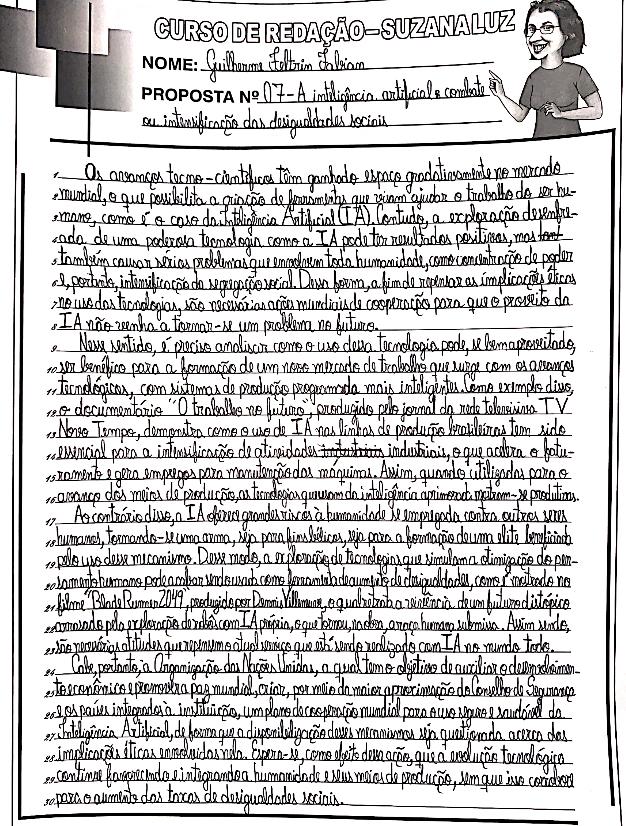 CURSO DE REDAÇÃO-SUZANA LUZ
NOME: Guilherme Feltrin Fabian
PROPOSTA Nº 07-A inteligência artificial e combate
ou intensificação das desigualdades sociais
1 Os avanços tecno-científicos têm ganhado espaço gradativamente no mercado
2 mundial, o que possibilita a criação de ferramentas que visam ajudar o trabalho do ser hu-
3 mano, como é o caso da Inteligência Artificial (IA). Contudo, a exploração desenfre-
4 ada de uma poderosa tecnologia como a IA pode ter resultados positivos, mas
5 também causar sérios problemas que envolvem toda humanidade, como concentração de poder
6 e, portanto, intensificação da segregação social. Dessa forma, a fim de repensar as implicações éticas
7 no uso das tecnologias, são necessárias ações mundiais de cooperação para que o proveito da
8 IA não venha a tornar-se um problema no futuro.
9 Nesse sentido, é preciso analisar como o uso dessa tecnologia pode, se bem aproveitado,
10 ser benéfico para a formação de um novo mercado de trabalho que surge com os avanços
11 tecnológicos, com sistemas de produção programada mais inteligentes. Como exemplo disso,
12 o documentário "O trabalho no futuro", produzido pelo jornal da rede televisiva TV
13 Novo Tempo, demonstra como o uso de IA nas linhas de produção brasileiras tem sido
14 essencial para a intensificação de atividades industriais, o que acelera o fatu-
15 ramento e gera empregos para manutenção das máquinas. Assim, quando utilizadas para o
16 avanço dos meios de produção, as tecnologias que usam da inteligência aprimorada mostram-se produtivas.
17 Ao contrário disso, a IA oferece grandes riscos à humanidade se empregada contra outros seres
18 humanos, tornando-se uma arma, seja para fins bélicos, seja para a formação de uma elite beneficiada
19 pelo uso desse mecanismo. Desse modo, a exploração de tecnologias que simulam a otimização do pen-
20 samento humano pode acabar sendo usada como ferramenta de aumento de desigualdades, como é mostrado no
21 filme "Blade Runner 2049", produzido por Dennis Villeneuve, o qual retrata a vivência de um futuro distópico
22 arrasado pela exploração de robôs com IA própria, o que tornou, na obra, a raça humana submissa. Assim sendo,
23 são necessárias atitudes que repensem o atual serviço que está sendo realizado com IA no mundo todo.
24 Cabe, portanto, à Organização das Nações Unidas, a qual tem o objetivo de auxiliar o desenvolvimen-
25 to econômico e promover a paz mundial, criar, por meio da maior aproximação do Conselho de Segurança
26 e os países integrados à instituição, um plano de cooperação mundial para o uso seguro e saudável da
27 Inteligência Artificial, de forma que a disponibilização desses mecanismos seja questionada acerca das
28 implicações éticas envolvidas nela. Espera-se, como efeito dessa ação, que a evolução tecnológica
29 continue favorecendo e integrando a humanidade e seus meios de produção, sem que isso corrobore
30 para o aumento das taxas de desigualdades sociais.